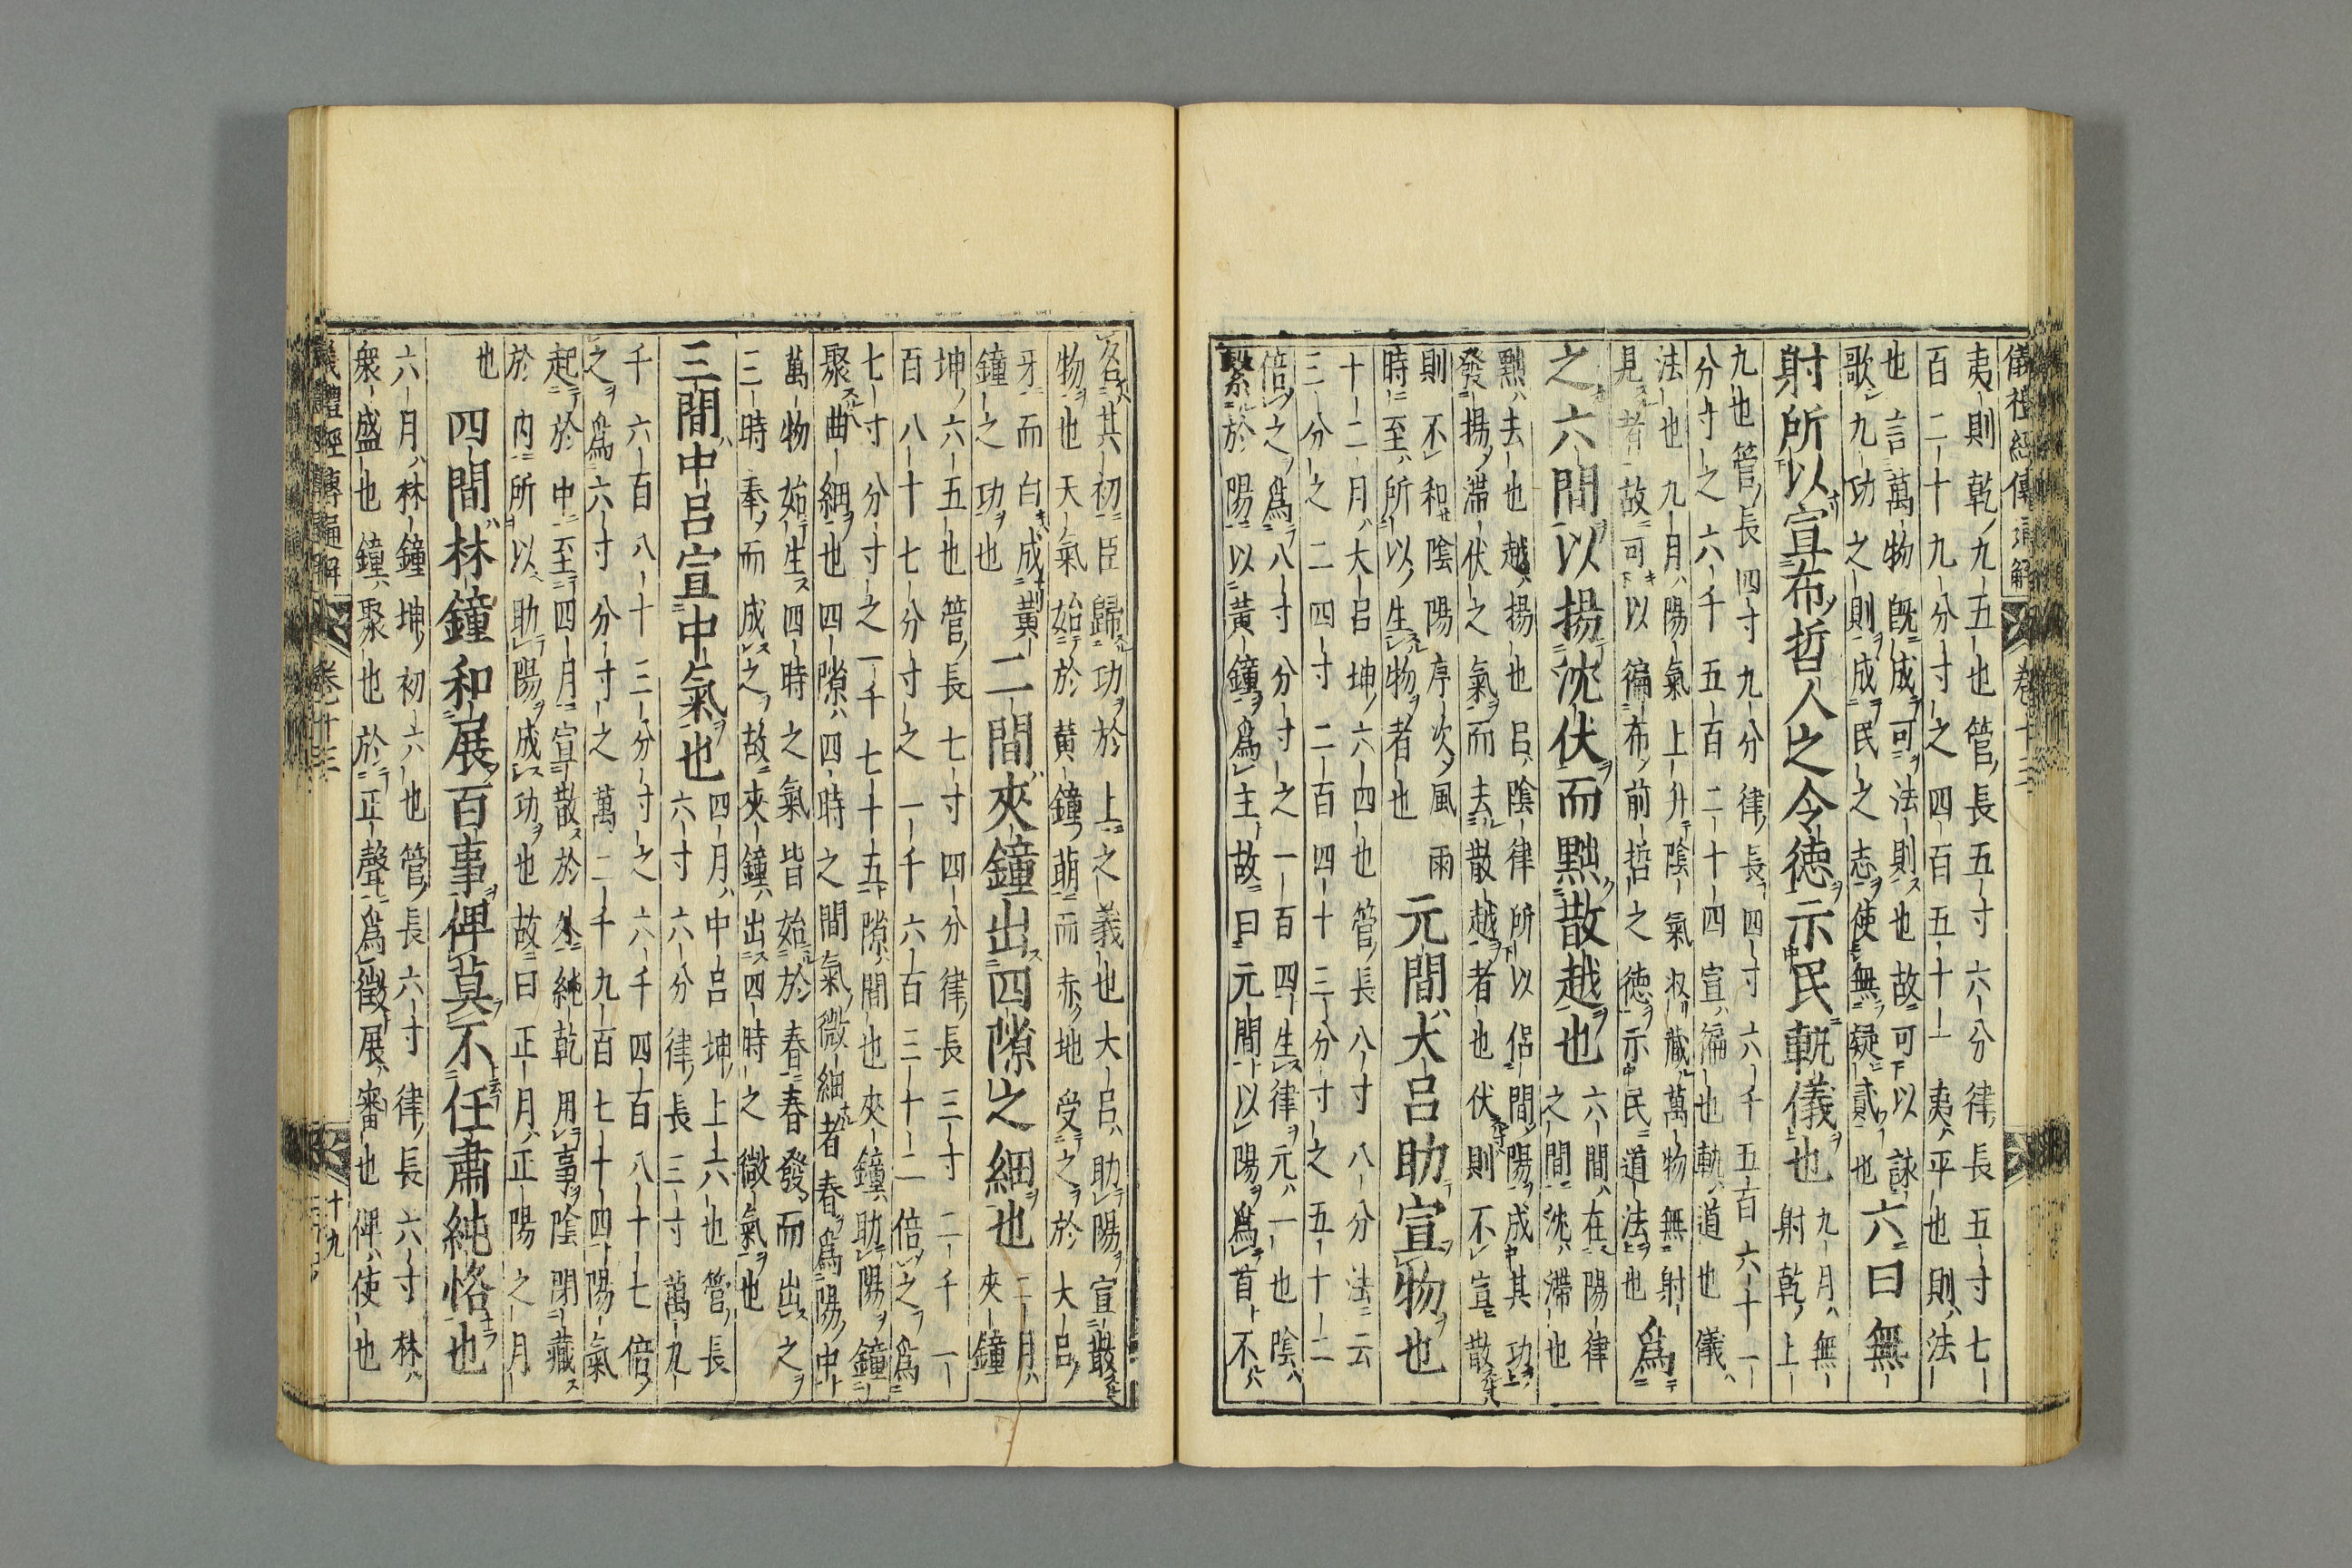 儀禮經傳通解 卷十三
夷則乾九五也管長五寸六分律長五寸七
百二十九分寸之四百五十一夷平也則法
也言萬物既成可法則也故可以詠
歌九功之則成民之志使無疑貳也
六曰無
射所以宣布哲人之令德示民軌儀也
九月無
射乾上
九也管長四寸九分律長四寸六千五百六十一
分寸之六千五百二十四宣徧也軌道也儀
法也九月陽氣上升陰氣收藏萬物無射
見者故可以徧布前哲之德示民道法也
爲
之六間以揚沈伏而黜散越也
六間在陽律
之間沈滯也
黜去也越揚也呂陰律所以侶間陽成其功
發揚滯伏之氣而去散越者也伏則不宣散
則不和陰陽序次風雨
時至所以生物者也
元間大呂助宣物也
十二月大呂坤六四也管長八寸八分法云
三分之二四寸二百四十三分寸之五十二
倍之爲八寸分寸之一百四生律元一也陰
繫於陽以黃鐘爲主故曰元間以陽爲首不
名其初臣歸功於上之義也大呂助陽宣散
物也天氣始於黃鐘萌而赤地受之於大呂
牙而白成黃
鐘之功也
二間夾鐘出四隙之細也
二月
夾鐘
坤六五也管長七寸四分律長三寸二千一
百八十七分寸之一千六百三十二倍之爲
七寸分寸之一千七十五隙間也夾鐘助陽鐘
聚曲細也四隙四時之間氣微細者春爲陽中
萬物始生四時之氣皆始於春春發而出之
三時奉而成之故夾鐘出四時之微氣也
三間中呂宣中氣也
四月中呂坤上六也管長
六寸六分律長三寸萬九
千六百八十三分寸之六千四百八十七倍
之爲六寸分寸之萬二千九百七十四陽氣
起於中至四月宣散於外純乾用事陰閉藏
於內所以助陽成功也故曰正月正陽之月
也
四間林鐘和展百事俾莫不任肅純恪也
六月林鐘坤初六也管長六寸律長六寸林
衆盛也鐘聚也於正聲爲徵展審也俾使也
儀禮經傳通解 卷十三 十九